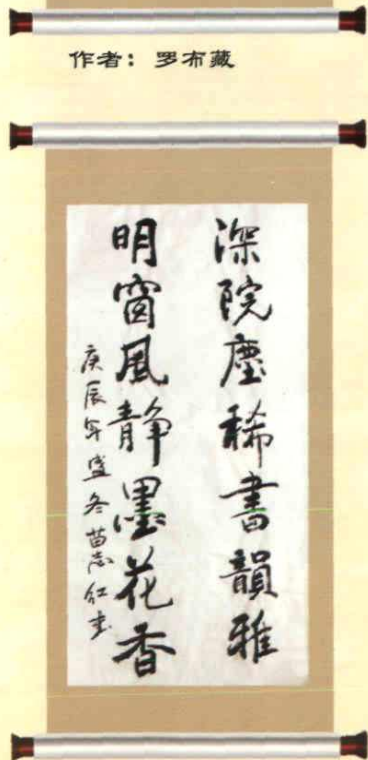 作者：罗布藏
深院塵稀書韻雅
明窗風静墨花香
庚辰年盛冬苗志红书